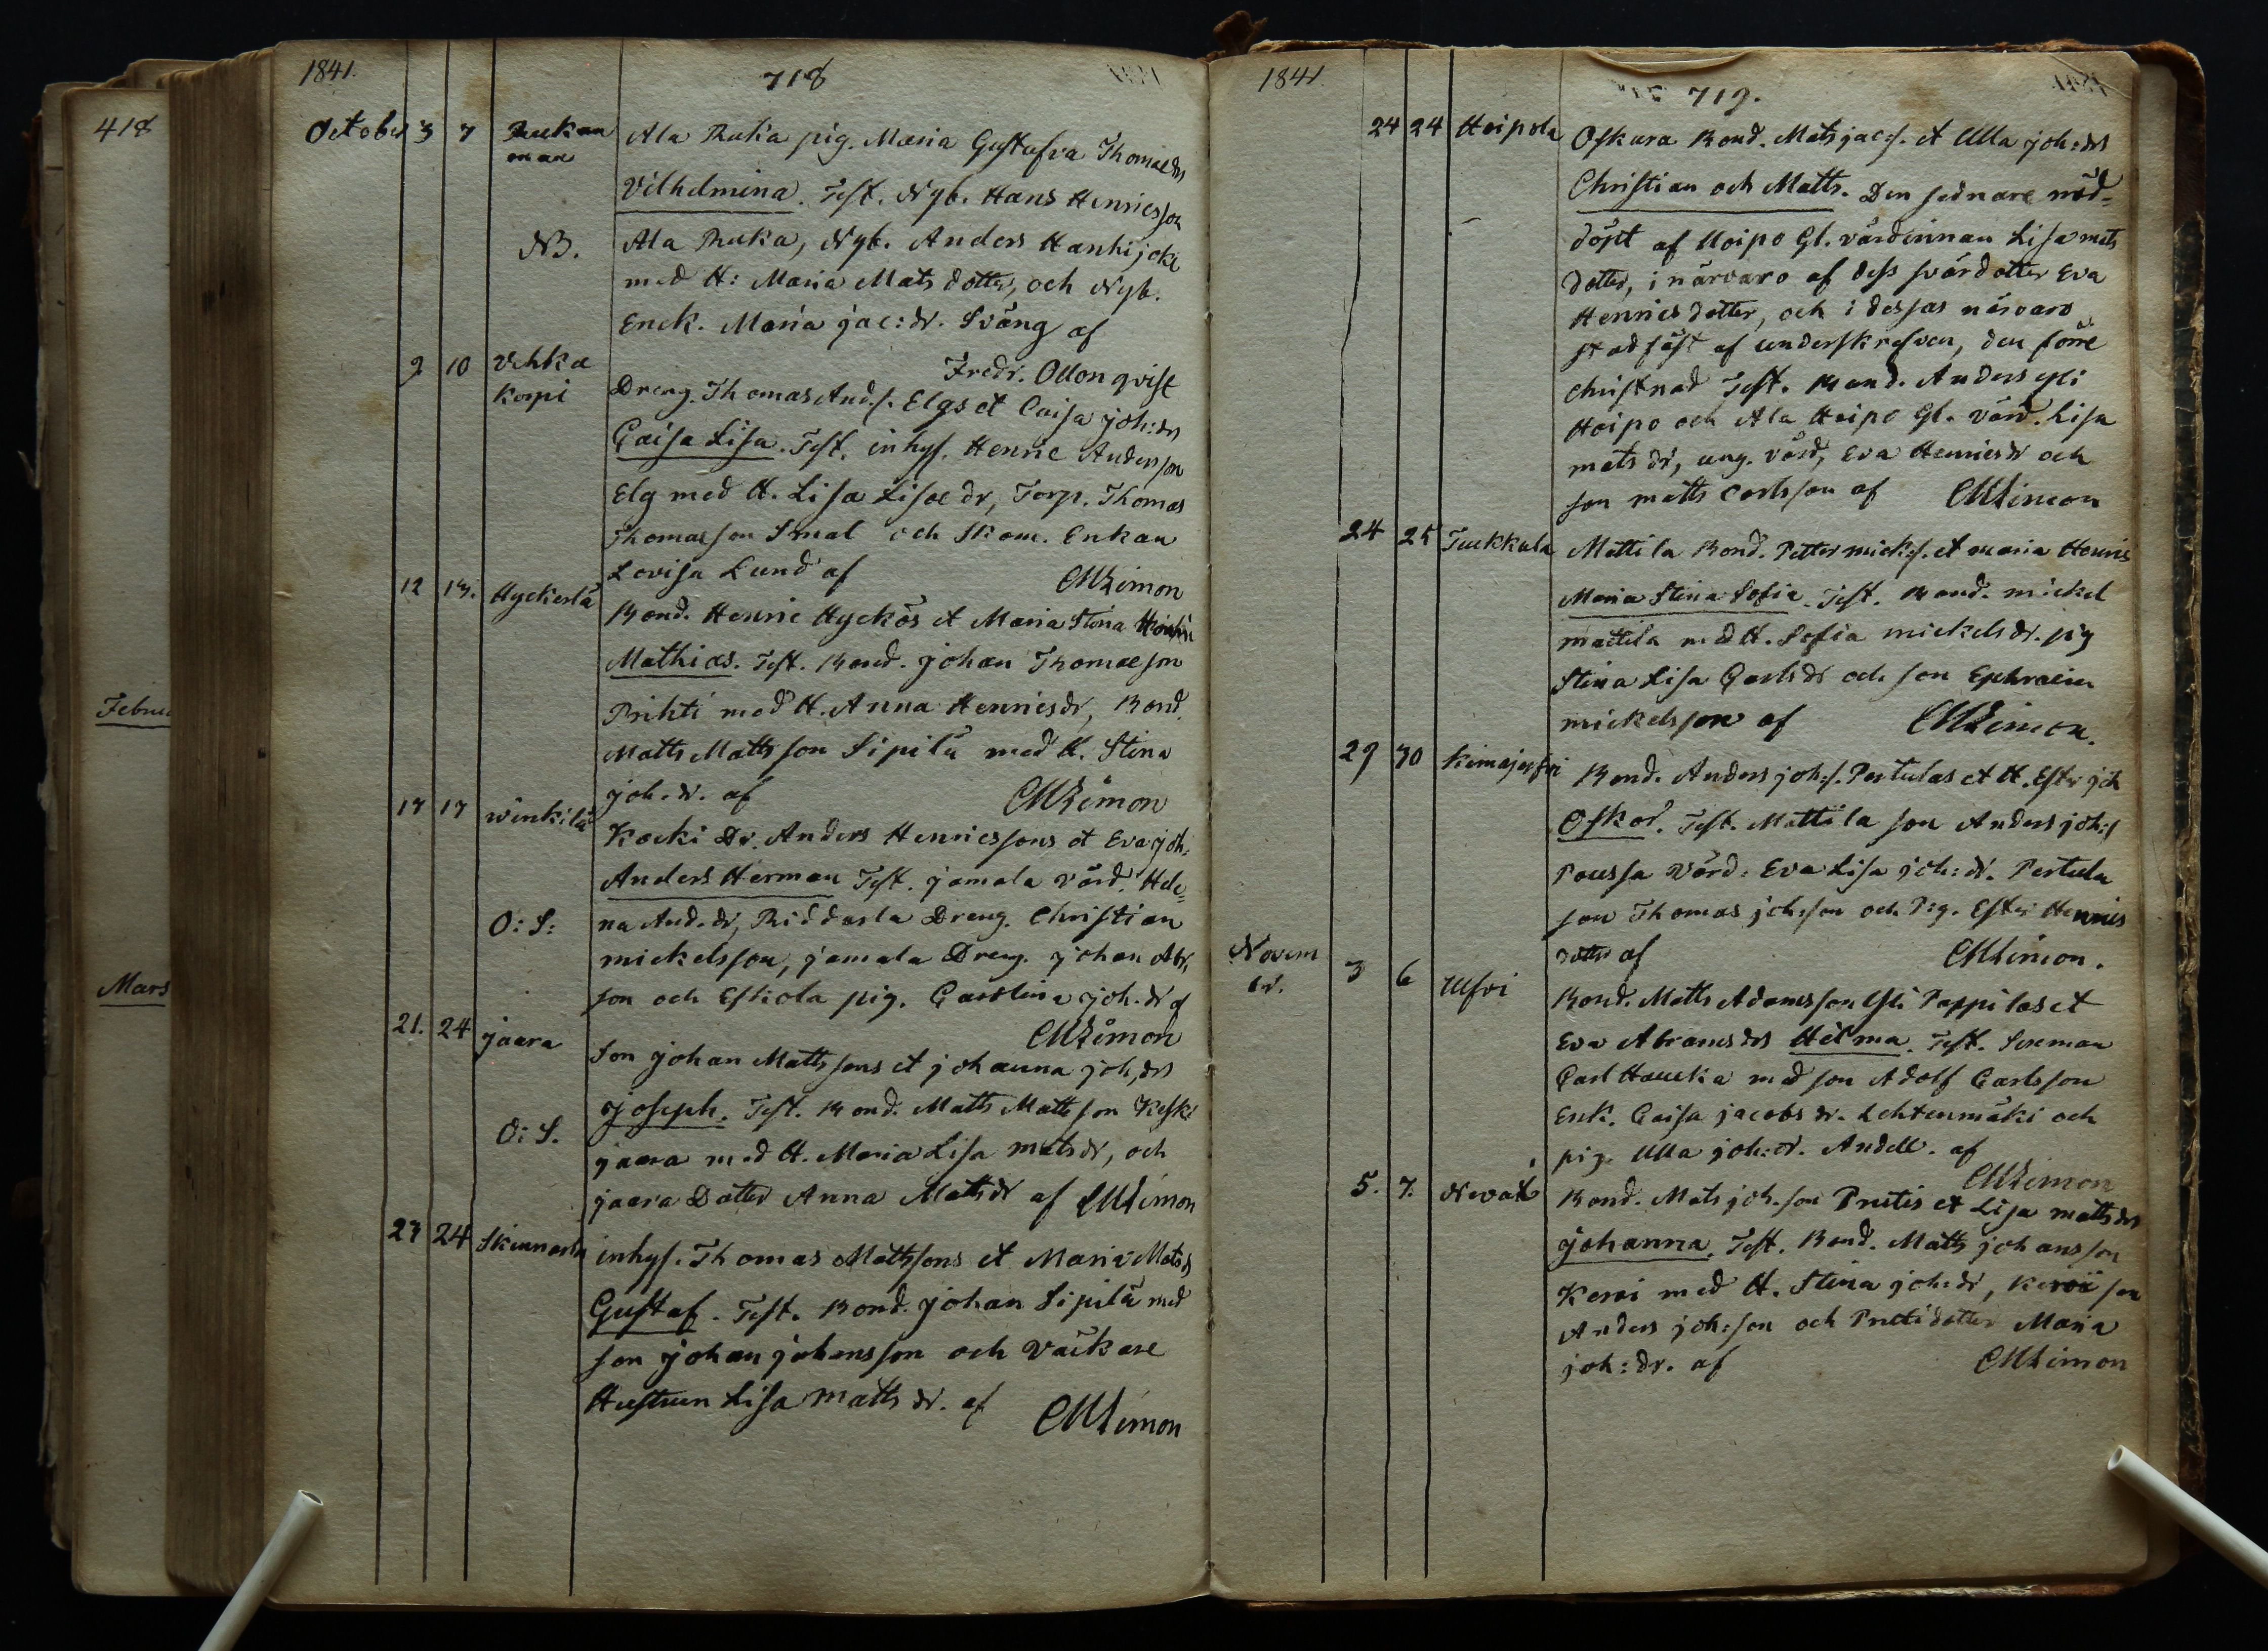 418
Februa
Mars
1841.
718
October 3 7 Ruekan
maa
Ala Ruka pig. Maria Gustafva Thomaedrs
Vilhelmina. Test. Nyb. Hans Henricsson
NB.
Ala Ruka, Nyb. Anders Hanhijoki
med H: Maria Mats dotter, och Nyb.
Enck. Maria jac:dr. Sväng af
Fredr. Ollonqvist
9 10 Vehka
korpi
Dreng. Thomas And.s. Elgs et Caisa joh:drs
Caisa Lisa. Test. inhys. Henric Andersson
Elg med H. Lisa Lisae dr, Torp. Thomas
Thomasson Smal och Skom. Enkan
Lovisa Lund af CMLimon
12 13. Hyckerlä
Bond. Henric Hyckös et Maria Stina
Mathias. Test. Bond. johan Thomaeson
Prihti med H. Anna Henricsdr, Bond.
Matts Mattsson Sipilä med H. Stina
joh.dr. af CMLimon
17 17 winkilä
Kocki Dr. Anders Henricssons et Eva joh.
Anders Herman Test. jamala värd. Hele=
O: S:
na And.dr, Riddarla Dreng. Christian
mickelsson, jamala Dreng. johan Abr.
son och Eskola pig. Carolina joh.dr af
CMLimon
21. 24 jaara
Son johan Mattssons et johanna joh,drs
joseph. Test. Bond. Matts Mattsson Keski
O: S.
jaara med H. Maria Lisa matsdr, och
jaara Dotter Anna Matsdr af CMLimon
23 24 Skinnarla
inhys. Thomas Mattssons et Maria Matsd
Gustaf. Test. Bond. johan Sipilä med
son johan johansson och Väckare
Hustrun Lisa Matts dr. af CMLimon
1841
719.
24 24 Hoipola
Oskara Bond. Mats jac:s. et Ulla joh:drs
Christian och Matts. Den sednare nöd-
döpt af Hoipo Gl. värdinnan Lisa mats
dotter, i närvaro af dess svärdotter Eva
Henrics dotter, och i dessas närvaro
stadfäst af underskrefven, den förre
christnad Test. Bond. Anders yli
Hoipo och Ala Hoipo Gl. värd. Lisa
mats dr, ung. värd, Eva Henricsdr och
son matts Carlsson af CMLimon
24 25 Tuckkala
Mattila Bond. Petter micks. et maria Henrics
Maria Stina Sofia. Test. Bond. mickel
mattila med H. Sofia mickelsdr. pig
Stina Lisa Carlsdr och son Ephraim
mickelsson af CMLimon.
29 30 kimajerfvi
Bond. Anders joh:s. Pertulas et H. Ester joh
Oskar. Test. Mattila son Anders joh:s
Poussa Värd: Eva Lisa joh:dr. Pertula
son Thomas joh:son och Pig. Ester Henrics
dotter af CMLimon.
Novem
br. 3 6 Ulfvi
Bond. Matts Adamsson Yli Pappilas et
Eva Abramsdrs Hilma. Test. Sexman
Carl Haucka med son Adolf Carlsson
Enk. Caisa jacobsdr. Lehtenmäki och
pig. Ulla joh:dr. Andell. af
CMLimon
5. 7. Nevat
Bond. Mats joh.son Prutis et Lisa mattsdrs
johanna. Test. Bond. Matts johansson
Kervi med H. Stina joh:dr, kervi son
Anders joh:son och Prutidotter Maria
joh:dr. af CMLimon